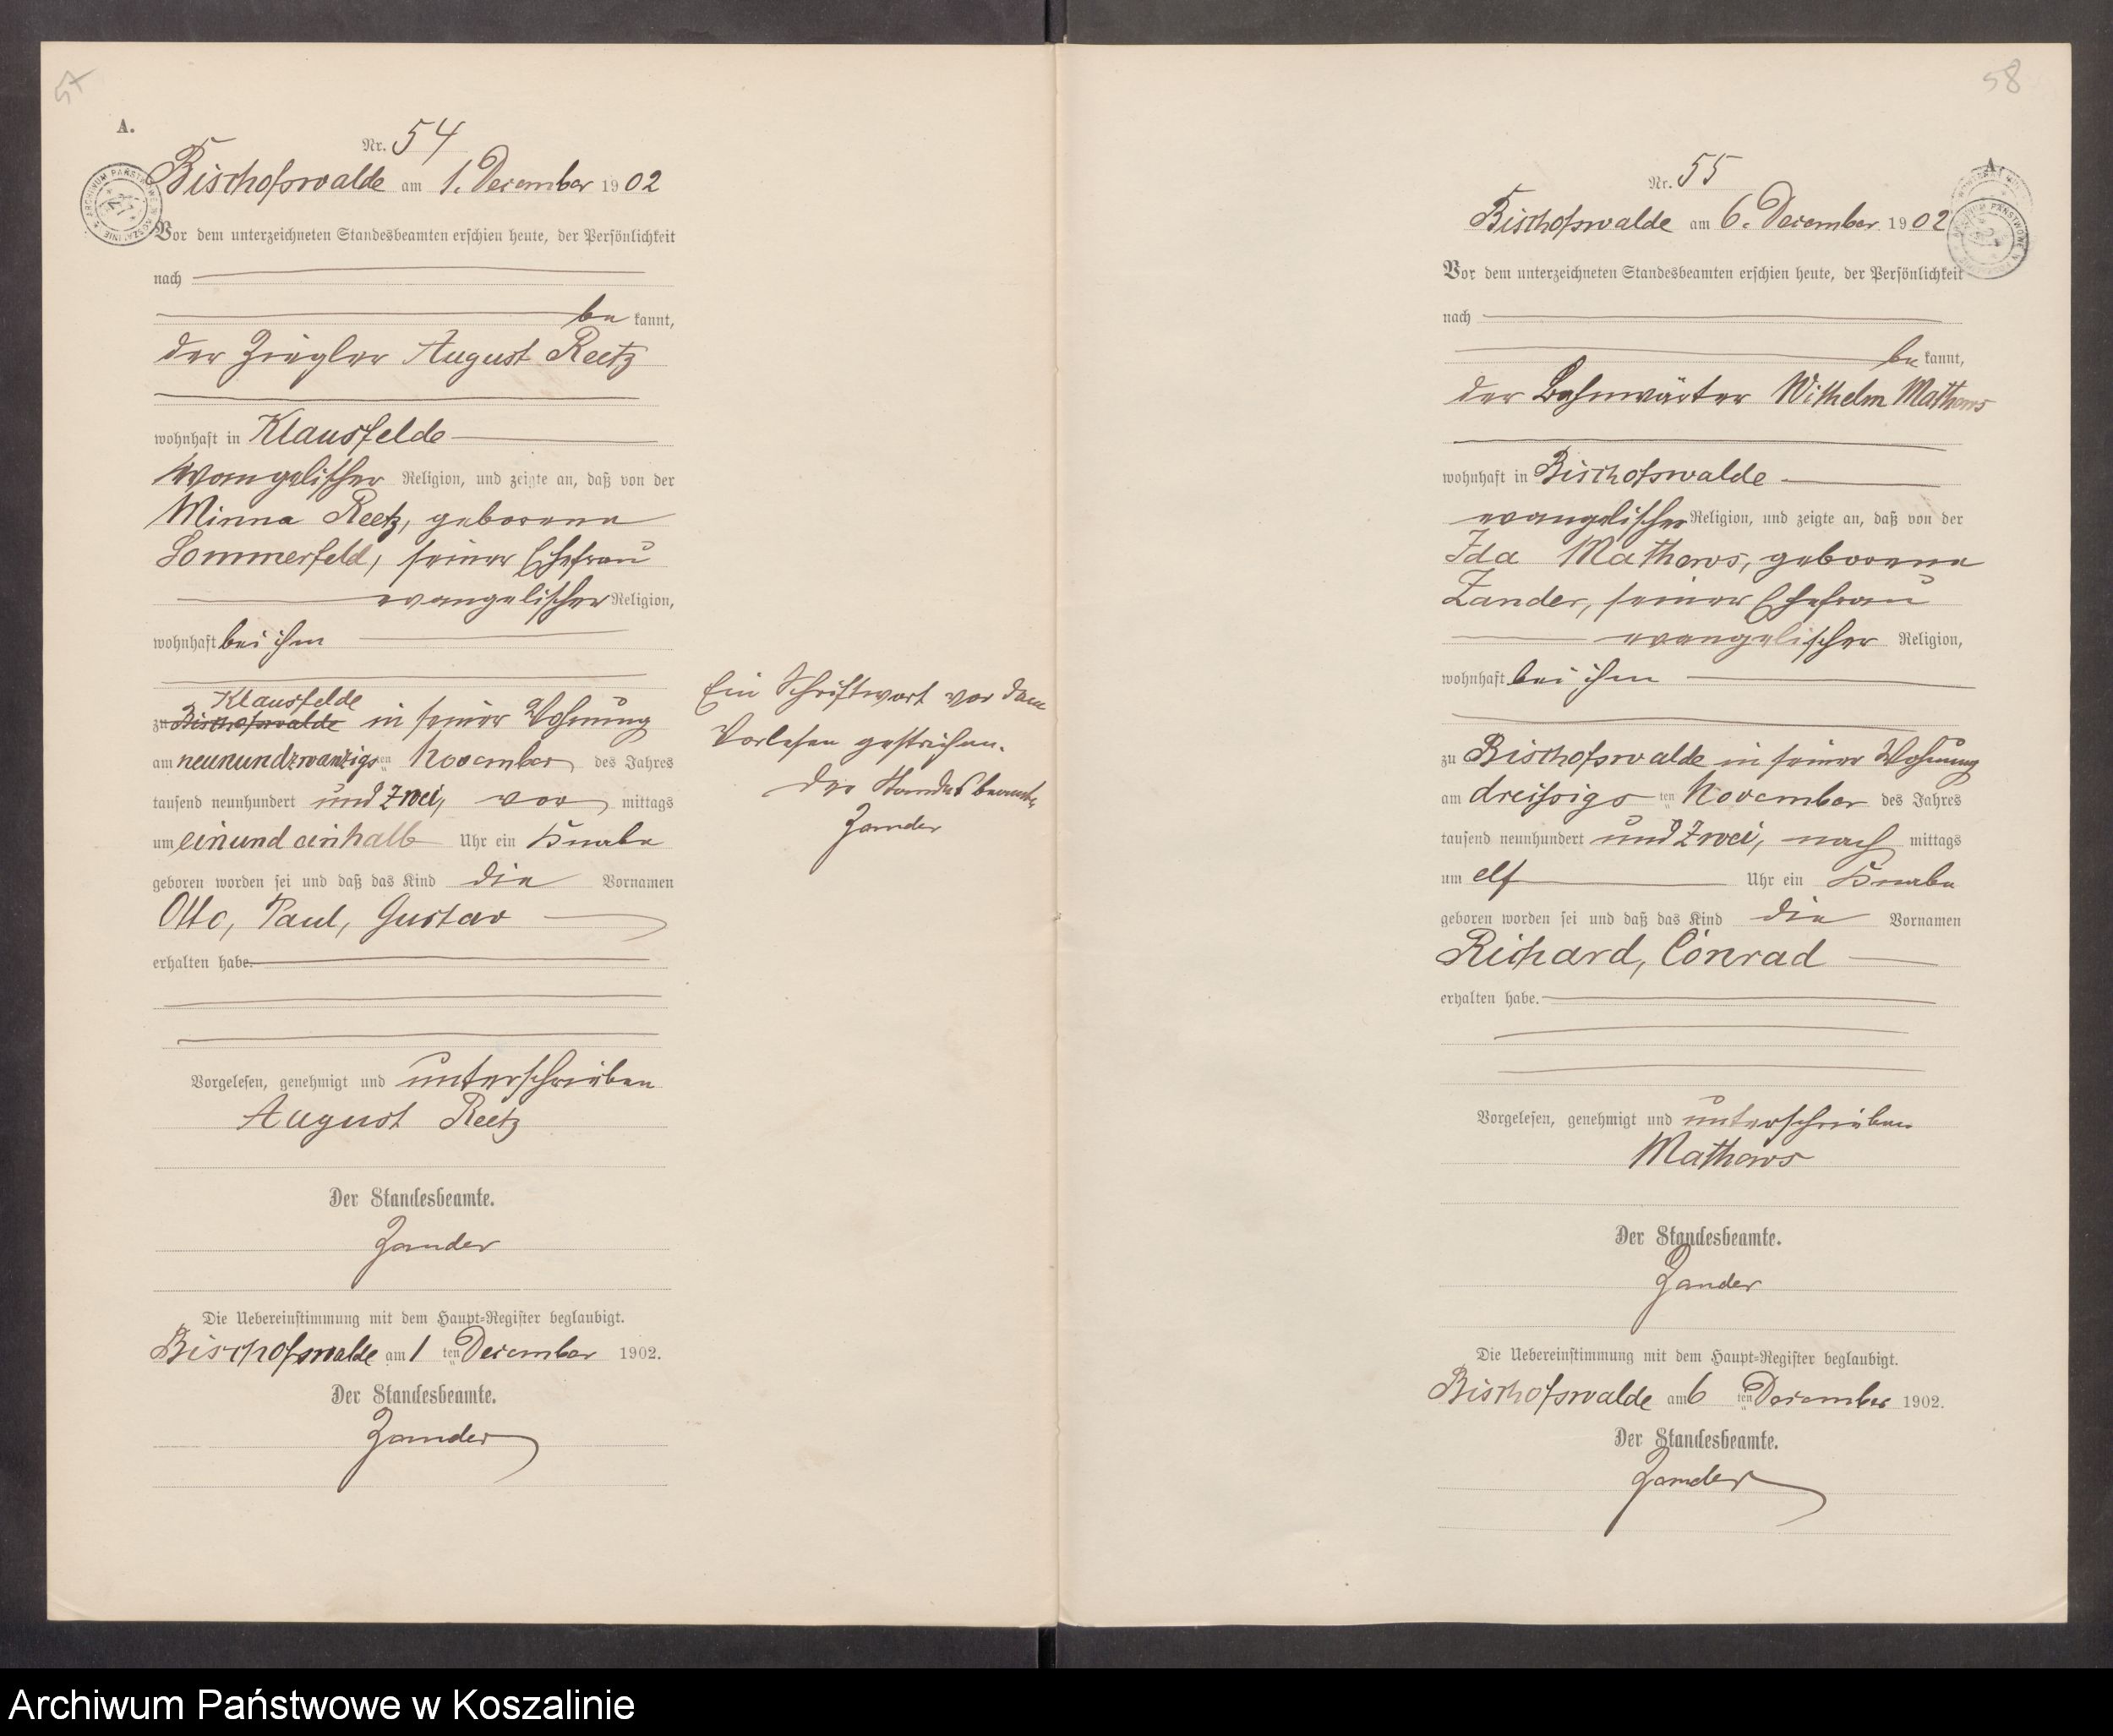 57
A.
Nr. 54
Bischofswalde am 1. December 1902
Vor dem unterzeichneten Standesbeamten erschien heute, der Persönlichkeit
nach
be kannt,
der Ziegler August Reetz
wohnhaft in Klausfelde
evangelischer Religion, und zeigte an, daß von der
Minna Reetz, geborene
Sommerfeld, seiner Ehefrau
evangelischer Religion,
wohnhaft bei ihm
Klausfelde
zu Bischofswalde in seiner Wohnung
am neunundzwanzigsten November des Jahres
tausend neunhundert und zwei, vor mittags
um einundeinhalb Uhr ein Knabe
geboren worden sei und daß das Kind die Vornamen
Otto, Paul, Gustav
erhalten habe.
Vorgelesen, genehmigt und unterschrieben
August Reetz
Der Standesbeamte.
Zander
Die Uebereinstimmung mit dem Haupt-Register beglaubigt.
Bischofswalde am 1 ten December 1902.
Der Standesbeamte.
Zander
Ein Schriftwort vor dem
Vorlesen gestrichen.
Der Standesbeamte
Zander
58
A.
Nr. 55
Bischofswalde am 6. December 1902
Vor dem unterzeichneten Standesbeamten erschien heute, der Persönlichkeit
nach
be kannt,
der Bahnwärter Wilhelm Mathews
wohnhaft in Bischofswalde
evangelischer Religion, und zeigte an, daß von der
Ida Mathews, geborene
Zander, seiner Ehefrau
evangelischer Religion,
wohnhaft bei ihm
zu Bischofswalde in seiner Wohnung
am dreißigsten November des Jahres
tausend neunhundert und zwei, nach mittags
um elf Uhr ein Knabe
geboren worden sei und daß das Kind die Vornamen
Richard, Conrad
erhalten habe.
Vorgelesen, genehmigt und unterschrieben
Mathews
Der Standesbeamte.
Zander
Die Uebereinstimmung mit dem Haupt-Register beglaubigt.
Bischofswalde am 6 ten December 1902.
Der Standesbeamte.
Zander
Archiwum Państwowe w Koszalinie